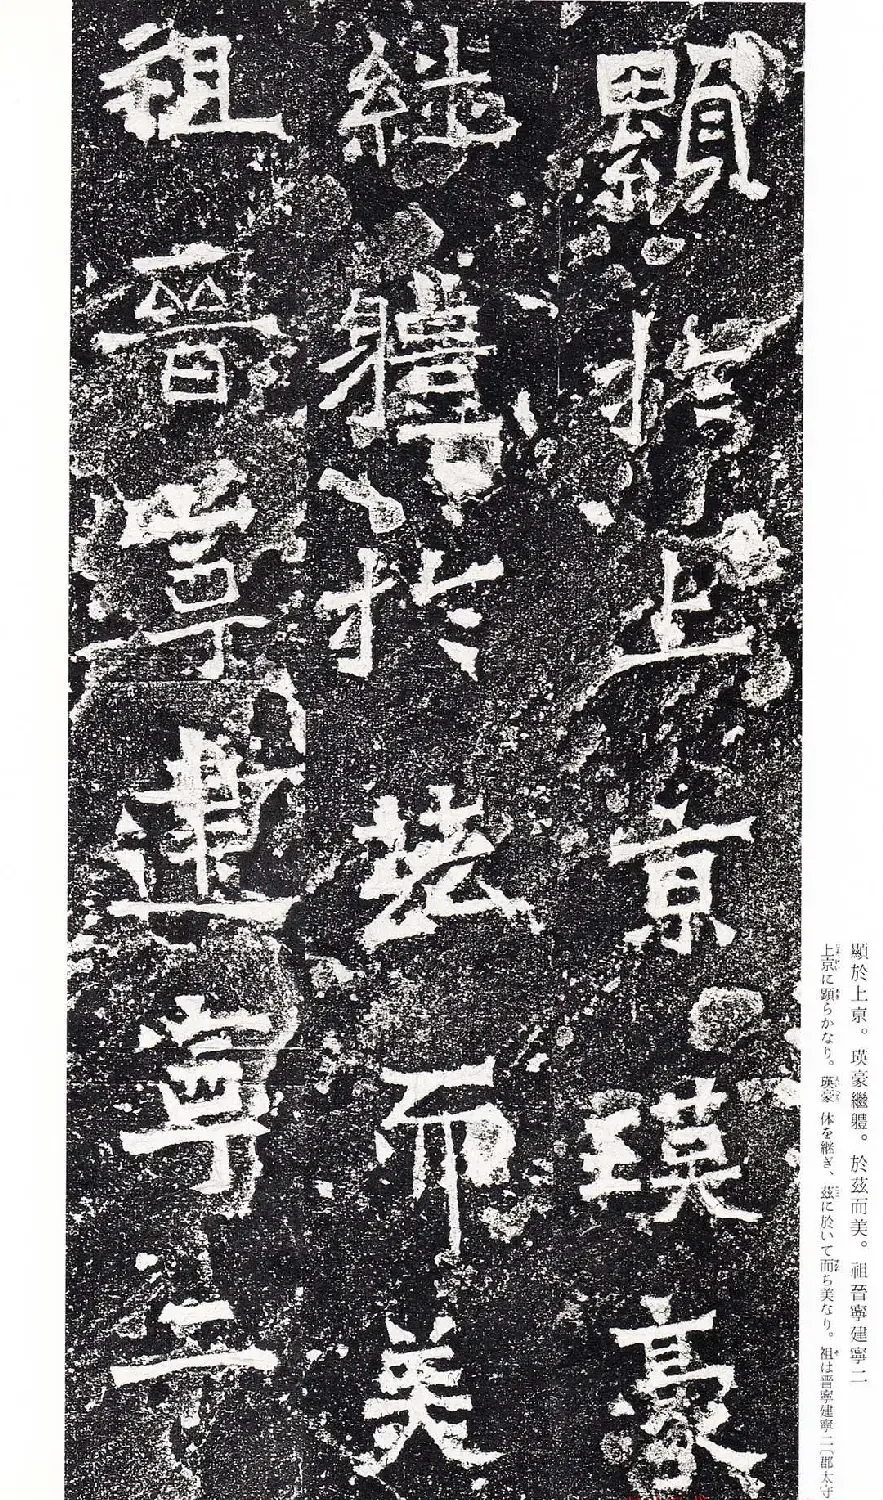 顯於上京瑛豪
繼軆於茲而美
祖晉寧建寧二
顯於上京。瑛豪繼軆。於茲而美。祖晉寧建寧二
上京に顕らかなり。瑛豪 体を継ぎ、茲に於いて而ち美なり。祖は晋寧建寧二〔郡太守